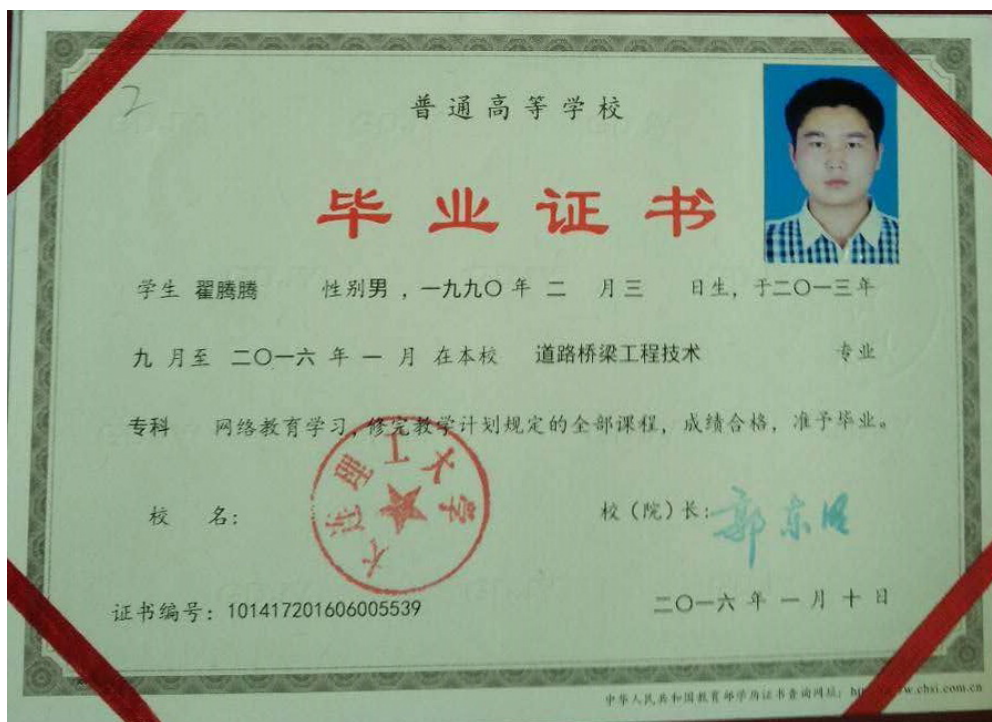 2
普通高等学校
毕业证书
学生 翟腾腾 性别男，一九九〇年 二 月三 日生，于二〇一三年
九 月至 二〇一六 年 一 月 在本校 道路桥梁工程技术 专业
专科 网络教育学习，修完教学计划规定的全部课程，成绩合格，准予毕业。
大连理工大学
校 名： 校（院）长：郭东明
证书编号：101417201606005539 二〇一六 年 一 月 十 日
中华人民共和国教育部学历证书查询网址：htt www.chsi.com.cn